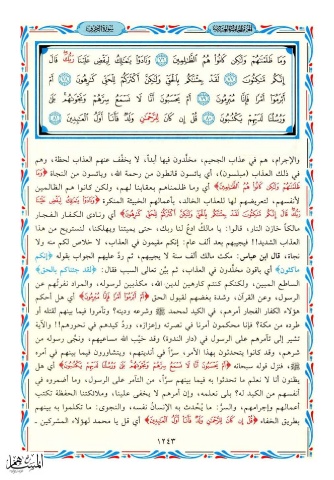 وَمَا ظَلَمْنَٰهُمْ وَلَٰكِن كَانُوا۟ هُمُ ٱلظَّٰلِمِينَ ﴿٧٦﴾ وَنَادَوْا۟ يَٰمَٰلِكُ لِيَقْضِ عَلَيْنَا رَبُّكَ قَالَ
إِنَّكُم مَّٰكِثُونَ ﴿٧٧﴾ لَقَدْ جِئْنَٰكُم بِٱلْحَقِّ وَلَٰكِنَّ أَكْثَرَكُمْ لِلْحَقِّ كَٰرِهُونَ ﴿٧٨﴾ أَمْ
أَبْرَمُوٓا۟ أَمْرًا فَإِنَّا مُبْرِمُونَ ﴿٧٩﴾ أَمْ يَحْسَبُونَ أَنَّا لَا نَسْمَعُ سِرَّهُمْ وَنَجْوَىٰهُم بَلَىٰ
وَرُسُلُنَا لَدَيْهِمْ يَكْتُبُونَ ﴿٨٠﴾ قُلْ إِن كَانَ لِلرَّحْمَٰنِ وَلَدٌ فَأَنَا۠ أَوَّلُ ٱلْعَٰبِدِينَ ﴿٨١﴾
والإجرام، هم في عذاب الجحيم، مخلَّدون فيها أبداً، لا يخفَّف عنهم العذاب لحظة، وهم
في ذلك العذاب (مبلسون)، أي يائسون قانطون من رحمة الله، ويائسون من النجاة ﴿وَمَا
ظَلَمْنَاهُمْ وَلَكِن كَانُوا هُمُ الظَّالِمِينَ﴾ أي وما ظلمناهم بعقابنا لهم، ولكن كانوا هم الظالمين
لأنفسهم، لتعريضهم لها للعذاب الخالد، بأعمالهم الخبيثة المنكرة ﴿وَنَادَوْا يَا مَالِكُ لِيَقْضِ عَلَيْنَا
رَبُّكَ قَالَ إِنَّكُم مَّاكِثُونَ لَقَدْ جِئْنَاكُم بِالْحَقِّ وَلَكِنَّ أَكْثَرَكُمْ لِلْحَقِّ كَارِهُونَ﴾ أي ونادى الكفار الفجار
مالكاً خازن النار، قائلوا: يا مالك ادع لنا ربك، حتى يميتنا ويهلكنا، لنستريح من هذا
العذاب الشديد!! فيجيبهم بعد ألف عام: إنكم مقيمون في العذاب، لا خلاص لكم منه ولا
نجاة، قال ابن عباس: مكث مالك ألف سنة لا يجيبهم، ثم ردَّ عليهم الجواب بقوله ﴿إنكم
ماكثون﴾ أي باقون مخلَّدون في العذاب، ثم بيَّن تعالى السبب فقال: ﴿لقد جئناكم بالحق﴾
الساطع المبين، ولكنكم كنتم كارهين لدين الله، مكذبين لرسوله، والمراد نفرتُهم عن
الرسول، وعن القرآن، وشدة بغضهم لقبول الحق ﴿أَمْ أَبْرَمُوا أَمْرًا فَإِنَّا مُبْرِمُونَ﴾ أي هل أحكم
هؤلاء الكفار الفجار أمرهم، في الكيد لمحمد ﷺ وشرعه ودينه؟ وتآمروا فيما بينهم لقتله أو
طرده من مكة؟ فإنا محكمون أمرنا في نصرته وإعزازه، وردّ كيدهم في نحورهم!! والآية
تشير إلى تآمرهم على الرسول في (دار الندوة) وقد خيَّب الله مساعيهم، ونجَّى رسوله من
شرهم، وقد كانوا يتحدثون بهذا الأمر، سرّاً في أنديتهم، ويتشاورون فيما بينهم في أمره
ﷺ، فنزل قوله سبحانه ﴿أَمْ يَحْسَبُونَ أَنَّا لَا نَسْمَعُ سِرَّهُمْ وَنَجْوَاهُم بَلَى وَرُسُلُنَا لَدَيْهِمْ يَكْتُبُونَ﴾ أي هل
يظنون أنا لا نعلم ما تحدثوا به فيما بينهم سرّاً، من التآمر على الرسول، وما أضمروه في
أنفسهم من الكيد له؟ بلى نعلمه، وإن أمرهم لا يخفى علينا، وملائكتنا الحفظة تكتب
أعمالهم وإجرامهم، والسرُّ: ما يُحْدث به الإنسانُ نفسه، والنجوى: ما تكلموا به بينهم
بطريق الخفاء ﴿قُلْ إِن كَانَ لِلرَّحْمَنِ وَلَدٌ فَأَنَا أَوَّلُ الْعَابِدِينَ﴾ أي قل يا محمد لهؤلاء المشركين -
١٢٤٣